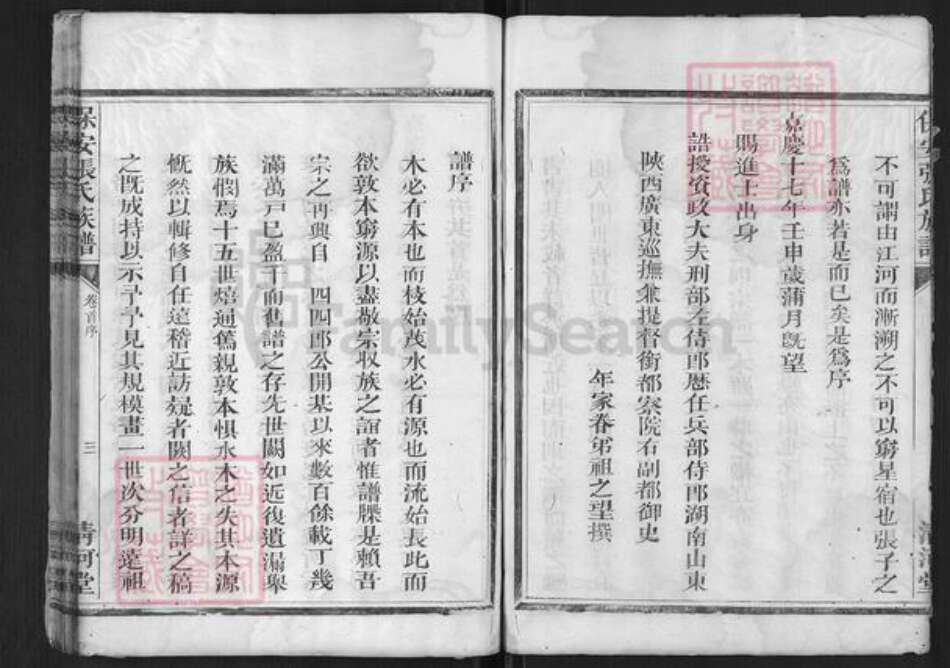 不可謂由江河而漸溯之不可以窮星宿也張子之
爲譜亦若是而已矣是爲序
嘉慶十七年壬申歲蒲月旣望
賜進士出身
誥授資政大夫刑部左侍郎歷任兵部侍郎湖南山東
陝西廣東巡撫兼提督銜都察院右副都御史
年家眷弟祖之望撰
保安張氏族譜
卷首序
三
清河堂
譜序
木必有本也而枝始茂水必有源也而流始長此而
欲敦本窮源以盡敬宗收族之誼者惟譜牒是賴吾
宗之再興自 四四郎公開基以來數百餘載丁幾
滿萬戸已盈千而舊譜之存先世闕如近復遺漏舉
族憫焉十五世熺通篤親敦本惧水木之失其本源
慨然以輯修自任遠稽近訪疑者闕之信者詳之稿
之旣成持以示予予見其規模畫一世次分明遠祖
FamilySearch